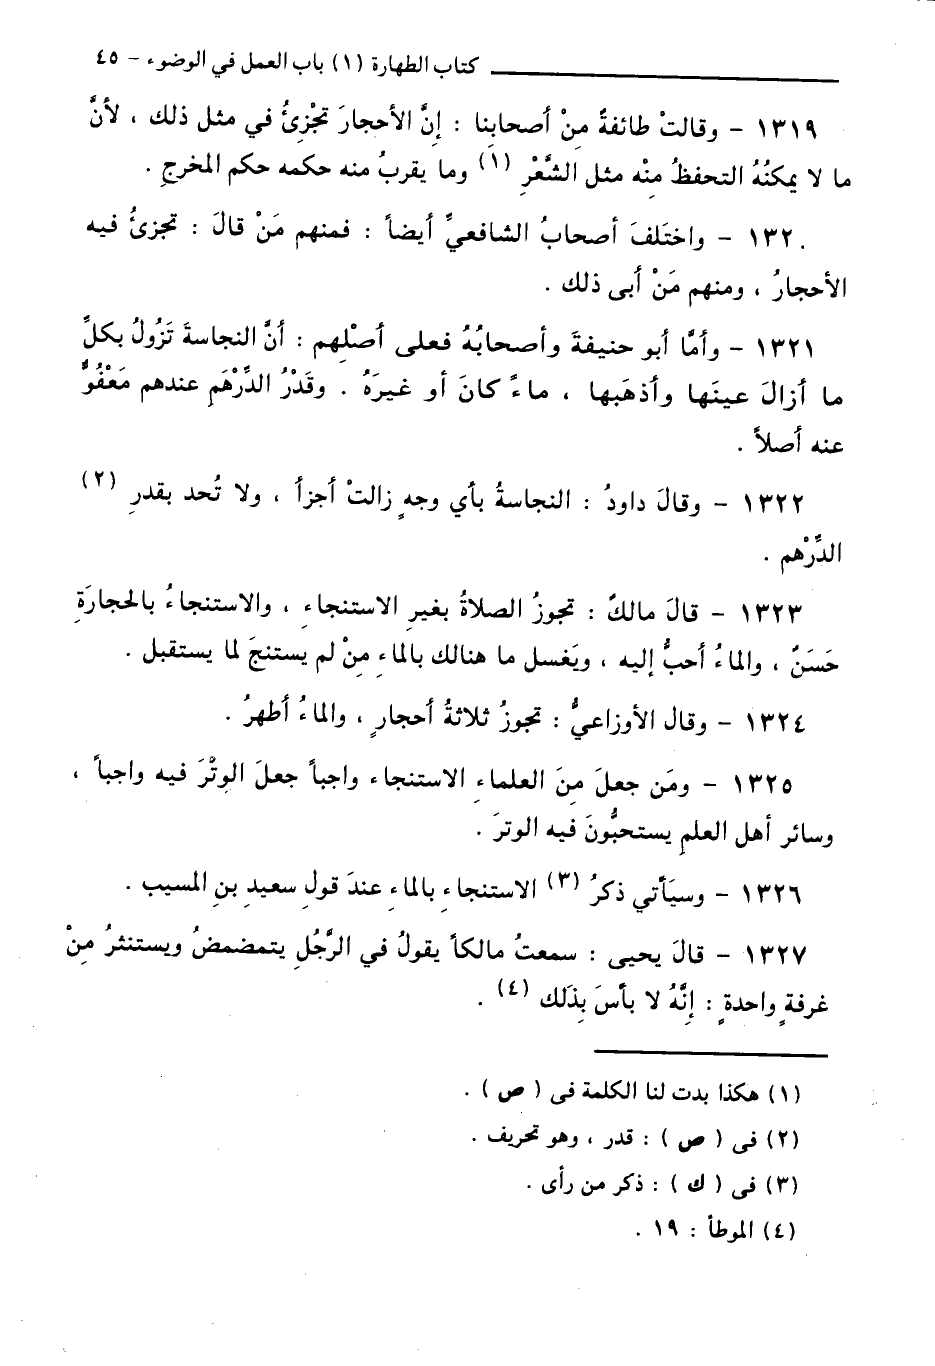 كتاب الطهارة (١) باب العمل في الوضوء – ٤٥
١٣١٩ – وقالتْ طائفةٌ مِنْ أصحابِنا : إنَّ الأحجارَ تجْزِئُ في مثل ذلك ، لأنَّ
ما لا يمكنُهُ التحفظُ مِنْه مثل الشَّعْرِ (١) وما يقربُ منه حكمه حكم المخرجِ .
١٣٢٠ – واختَلفَ أصحابُ الشافعيِّ أيضاً : فمنهم مَنْ قالَ : تجزئُ فيه
الأحجارُ ، ومنهم مَنْ أبى ذلك .
١٣٢١ – وأمَّا أبو حنيفةَ وأصحابُهُ فعلى أصْلِهم : أنَّ النجاسةَ تَزُولُ بكلِّ
ما أزالَ عينَها وأذهَبها ، ماءً كانَ أو غيرَهُ . وقَدْرُ الدِّرْهَمِ عندهم مَعْفُوٌّ
عنه أصلاً .
١٣٢٢ – وقالَ داودُ : النجاسةُ بأي وجهٍ زالتْ أجزأ ، ولا تُحد بقدرِ (٢)
الدِّرْهم .
١٣٢٣ – قالَ مالكٌ : تجوزُ الصلاةُ بغيرِ الاستنجاءِ ، والاستنجاءُ بالحجارَةِ
حَسَنٌ ، والماءُ أحبُّ إليه ، ويَغسل ما هنالك بالماءِ مِنْ لم يستنجَ لما يستقبل .
١٣٢٤ – وقال الأوزاعيُّ : تجوزُ ثلاثةُ أحجارٍ ، والماءُ أطهرُ .
١٣٢٥ – ومَن جعلَ مِنَ العلماءِ الاستنجاء واجباً جعلَ الوِتْرَ فيه واجباً ،
وسائر أهل العلمِ يستحبُّونَ فيه الوترَ .
١٣٢٦ – وسيَأتي ذكرُ (٣) الاستنجاءِ بالماءِ عندَ قولِ سعيدِ بنِ المسيب .
١٣٢٧ – قالَ يحيى : سمعتُ مالكاً يقولُ في الرَّجُلِ يتمضمضُ ويستنثرُ مِنْ
غرفةٍ واحدةٍ : إنَّهُ لا بأسَ بِذَلك (٤) .
(١) هكذا بدت لنا الكلمة فى ( ص ) .
(٢) فى ( ص ) : قدر ، وهو تحريف .
(٣) فى ( ك ) : ذكر من رأى .
(٤) الموطأ : ١٩ .